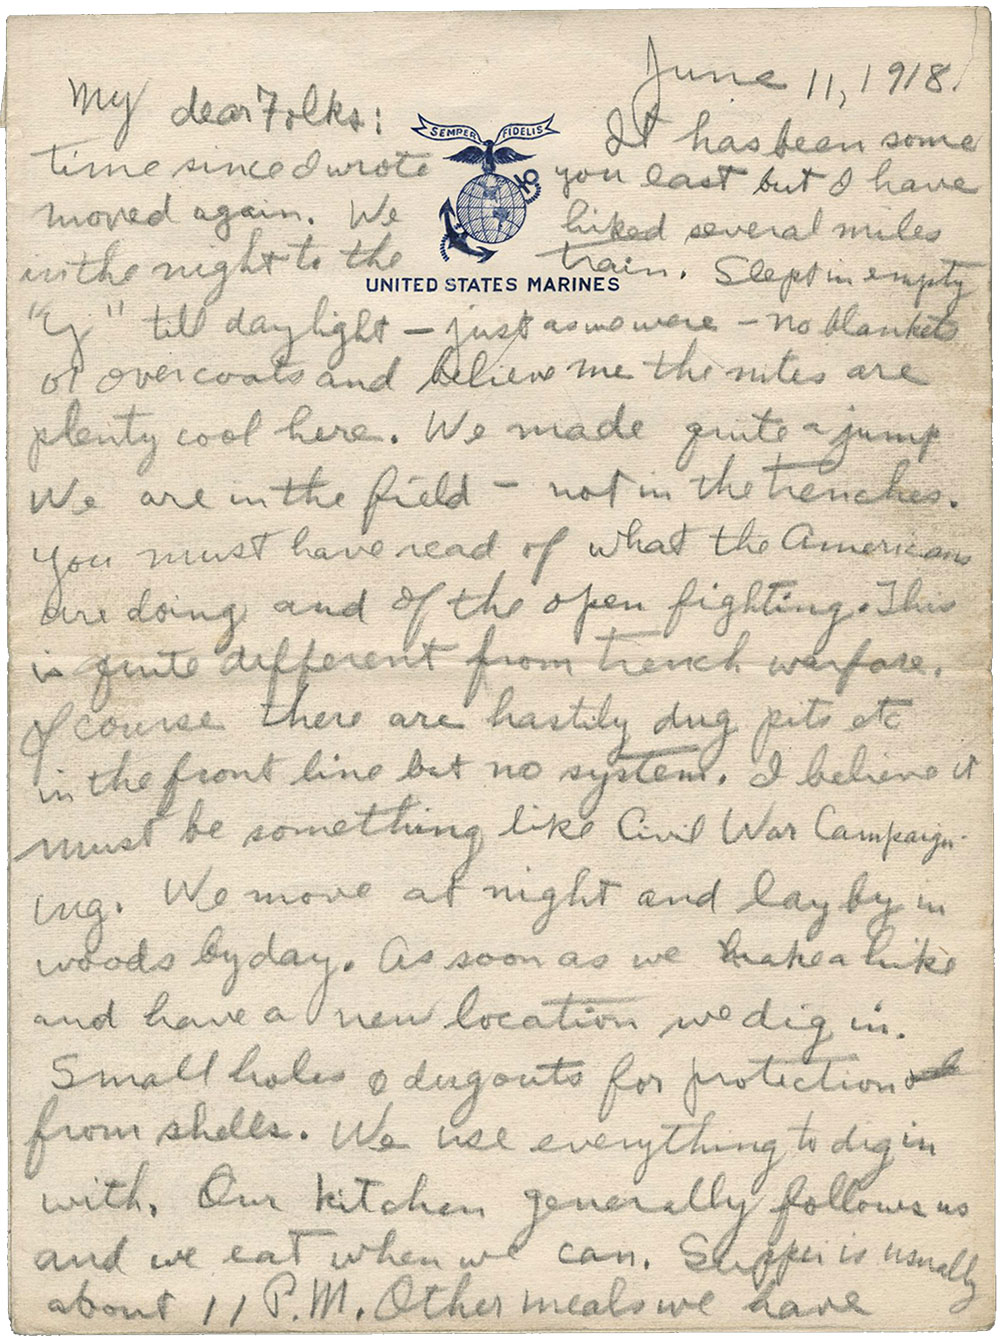 June 11, 1918.
My dear Folks:
SEMPER FIDELIS
It has been some
time since I wrote you last but I have
moved again. We hiked several miles
in the night to the train. Slept in empty
UNITED STATES MARINES
till daylight – just as we were – no blankets
or overcoats and believe me the nites are
plenty cool here. We made quite a jump
We are in the field – not in the trenches.
You must have read of what the Americans
are doing and of the open fighting. This
is quite different from trench warfare.
Of course there are hastily dug pits etc
in the front line but no system. I believe it
must be something like Civil War Campaign-
ing. We move at night and lay by in
woods by day. As soon as we make a hike
and have a new location we dig in.
Small holes & dugouts for protection
from shells. We use everything to dig in
with. Our kitchen generally follows us
and we eat when we can. Supper is usually
about 11 P.M. Other meals we have